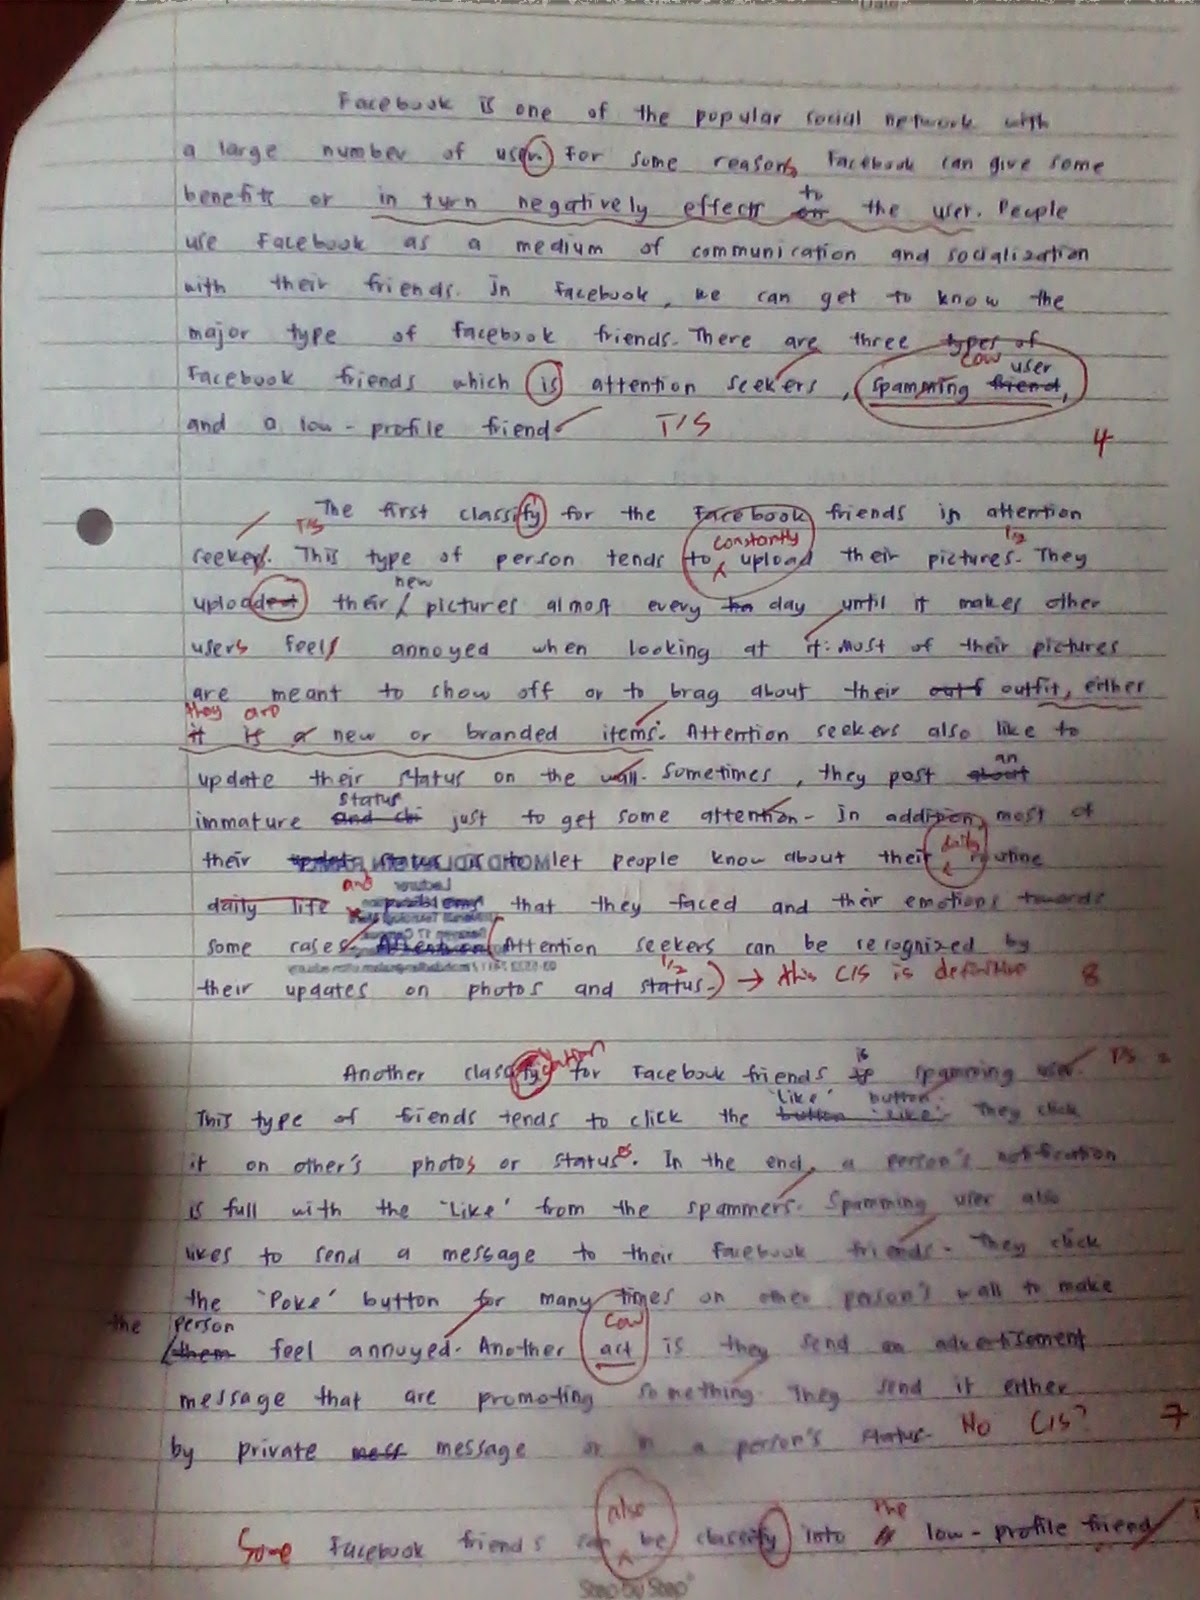 Facebook is one of the popular social network with
a large number of user. For some reasons Facebook can give some
benefits or in turn negatively effects to the user. People
use Facebook as a medium of communication and socialization
with their friends. In Facebook, we can get to know the
major type of Facebook friends. There are three types of
cow user
Facebook friends which is attention seekers, spamming friend,
and a low-profile friend T/S
4
The first classify for the Facebook friends is attention
T/S constantly 1/2
seeker. This type of person tends to upload their pictures. They
new
uploaded their pictures almost every day until it makes other
users feels annoyed when looking at it. Most of their pictures
are meant to show off or to brag about their outfit, either
they are
it is a new or branded items. Attention seekers also like to
update their status on the wall. Sometimes, they post an about
status
immature just to get some attention. In addition, most of
daily
their update status is to let people know about their routine
and
daily life that they faced and their emotions towards
some cases. Attention Attention seekers can be recognized by
1/2
their updates on photos and status.) → this C/S is definitive 8
Another classification for Facebook friends is spamming user. T/S
'Like' button.
This type of friends tends to click the button 'Like'. They click
it on other's photos or status. In the end, a person's notification
is full with the 'Like' from the spammers. Spamming user also
likes to send a message to their Facebook friends. They click
the 'Poke' button for many times on other person's wall to make
the person cow
them feel annoyed. Another act is they send an advertisement
message that are promoting something. They send it either
by private mess message or in a person's status. No C/S? 7
also the
Some Facebook friends can be classify into low-profile friend
Step by Step